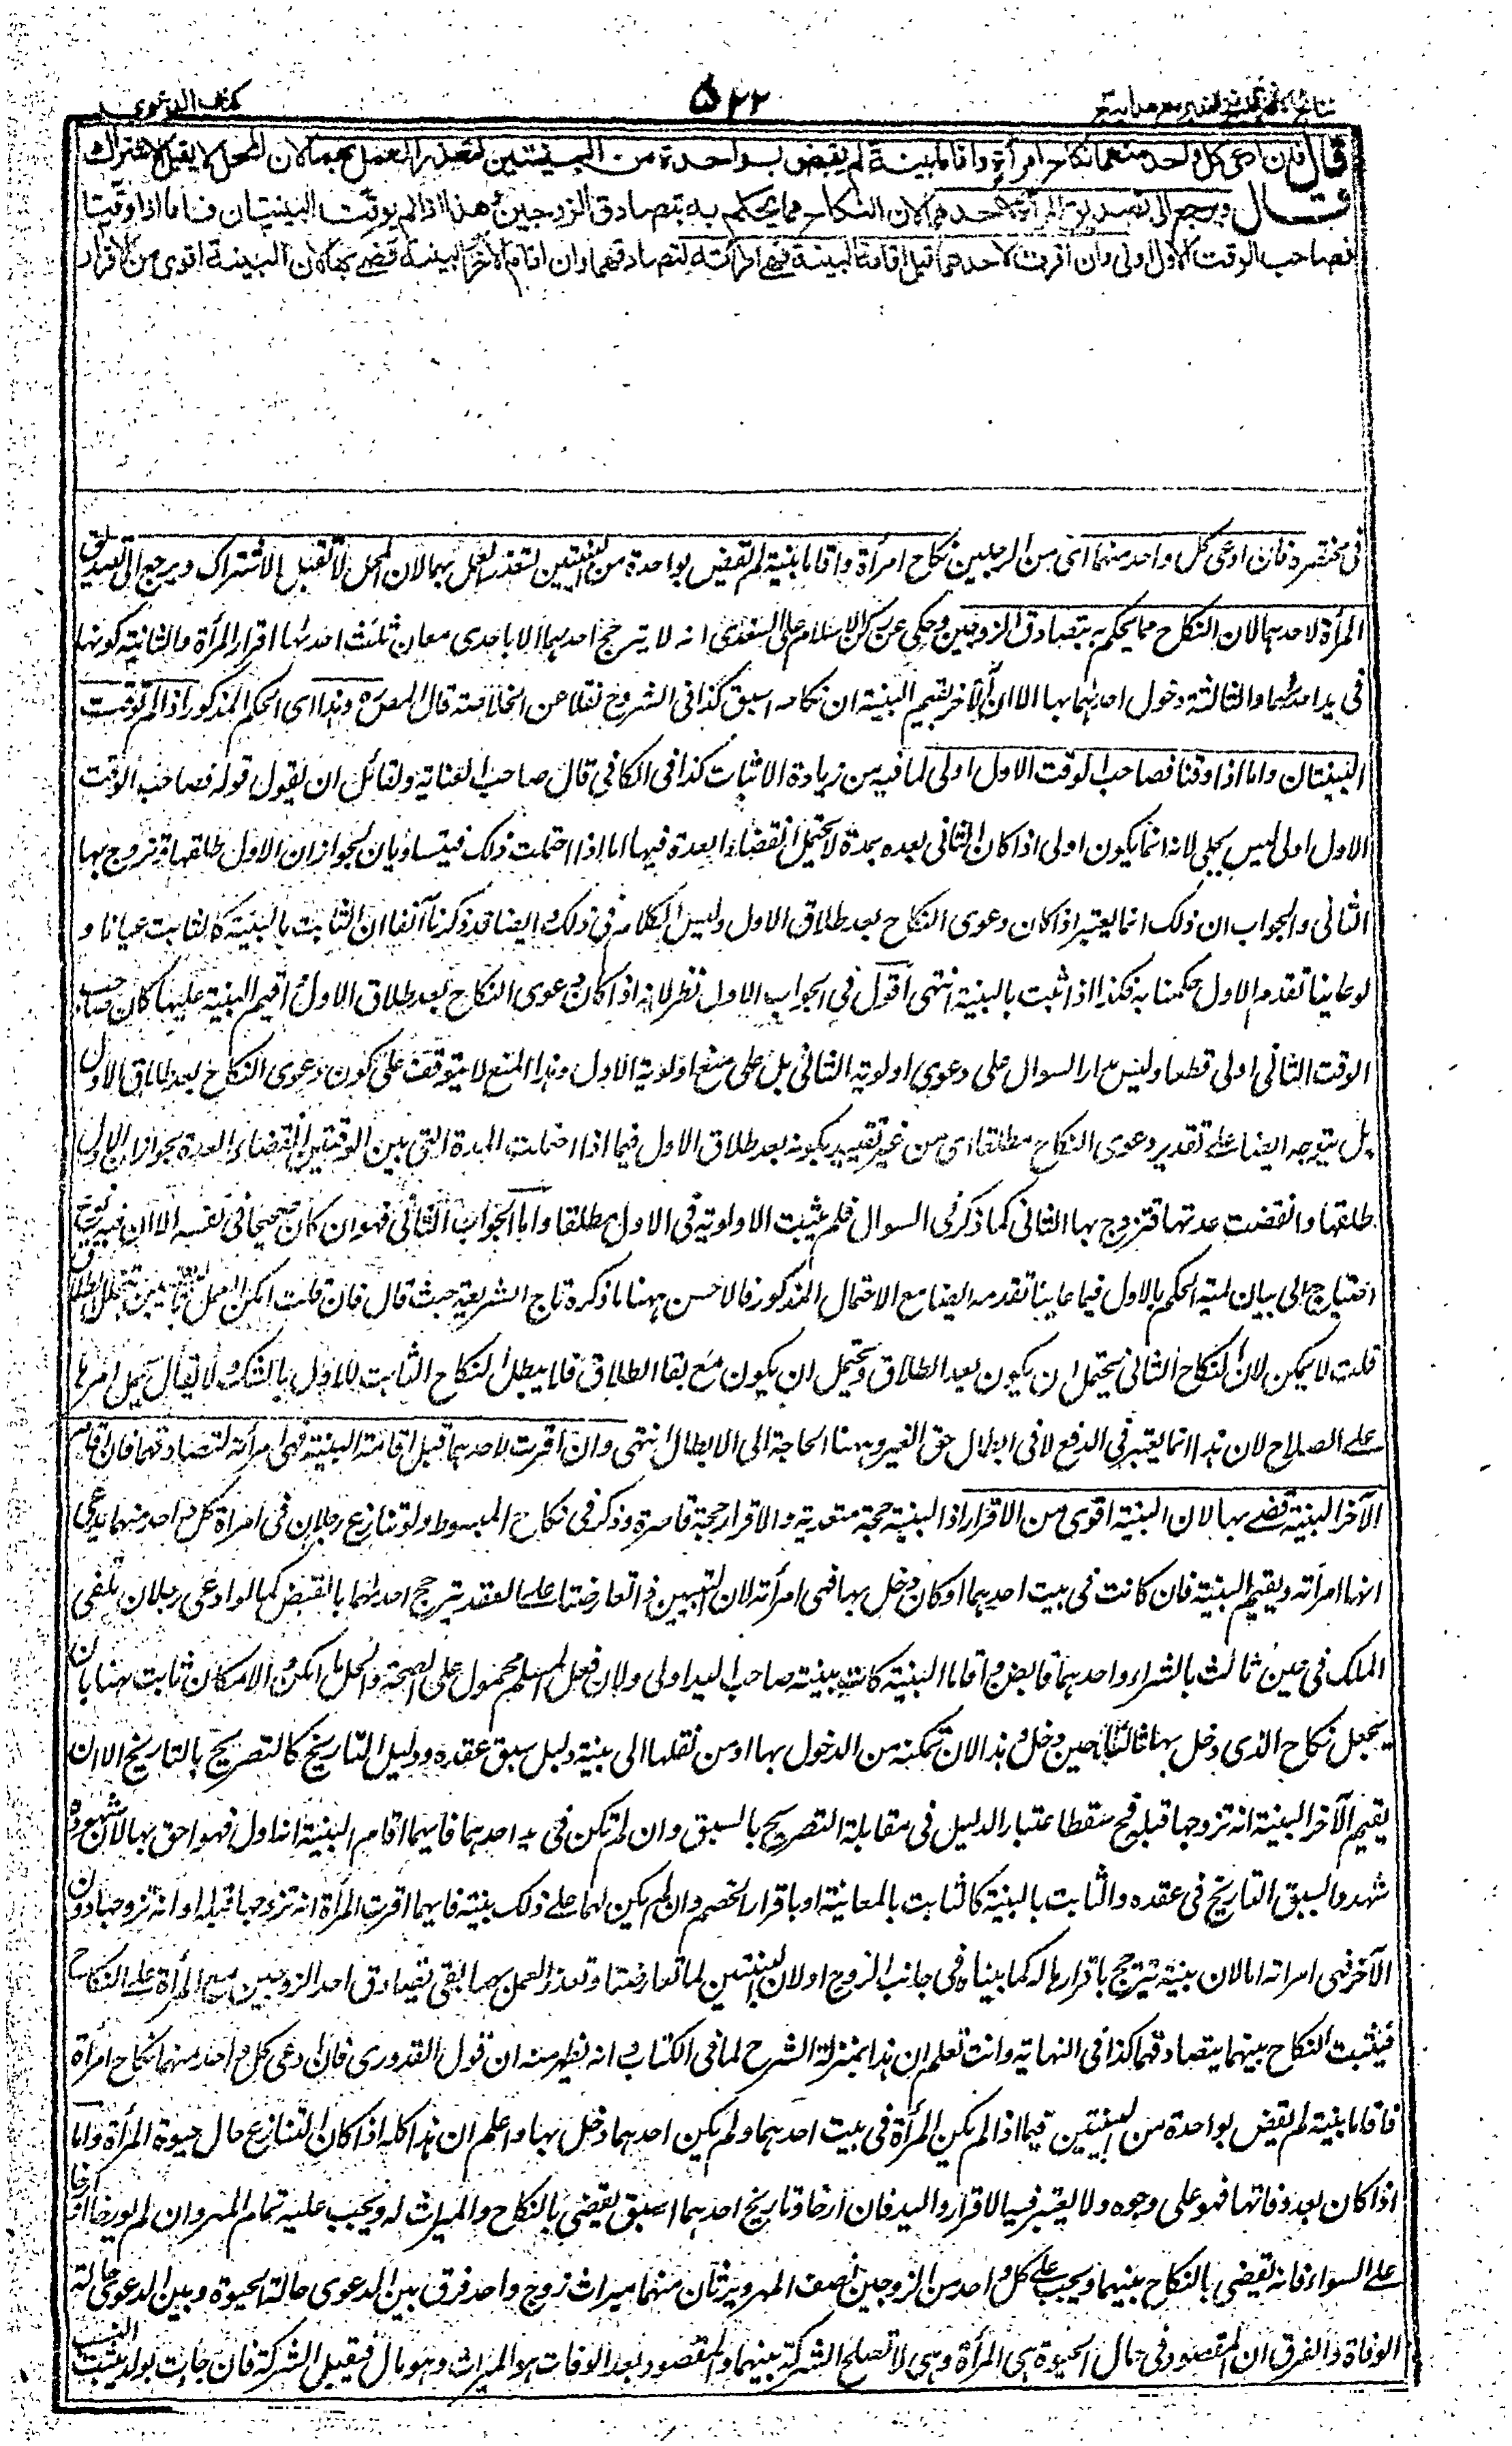 ۵۲۲
كتاب الدعوى
قال فان ادعى كل واحد منهما نكاح امرأة واقاما بينة لم يقض بواحدة من البينتين لتعذر العمل بهما لان المحل لا يقبل الاشتراك
قال ويرجع الى تصديق المرأة لاحدهما لان النكاح مما يحكم به بتصادق الزوجين وهذا اذا لم يوقت البينتان فاما اذا وقتا
فصاحب الوقت الاول اولى وان اقرت لاحدهما قبل اقامة البينة فهي امرأته لتصادقهما وان اقام الآخر البينة قضي بها لان البينة اقوى من الاقرار
في مختصره فان ادعى كل واحد منهما اى من الرجلين نكاح امرأة واقاما بينة لم تقض بواحدة من البينتين لتعذر العمل بهما لان المحل لا تقبل الاشتراك ويرجع الى تصديق
المرأة لاحدهما لان النكاح مما يحكم به بتصادق الزوجين وحكى عن ركن الاسلام على السغدى انه لا يترجح احدهما الا باحدى معان ثلث احدها اقرار المرأة والثانية كونها
في يد احدهما والثالثة دخول احدهما بها الا ان الآخر يقيم البينة ان نكاحه اسبق كذا في الشروح نقلا عن الخلاصة قال المصره وهذا اى الحكم المذكور اذا لم توقت
البينتان واما اذا وقتا فصاحب الوقت الاول اولى لما فيه من زيادة الاثبات كذا في الكافى قال صاحب العناية ولقائل ان يقول قوله فصاحب الوقت
الاول اولى ليس بجلى لانه انما يكون اولى اذا كان الثانى بعده بمدة لا تحتمل انقضاء العدة فيها اما اذا احتملت ذلك فيتساويان لجواز ان الاول طلقها فتزوج بها
الثانى والجواب ان ذلك انما يعتبر اذا كان دعوى النكاح بعد طلاق الاول وليس الكلام في ذلك وايضا قد ذكرنا آنفا ان الثابت بالبينة كالثابت عيانا و
لو عاينا تقدم الاول حكمنا به فكذا اذا ثبت بالبينة انتهى اقول في الجواب الاول نظر لانه اذا كان دعوى النكاح بعد طلاق الاول واقيم البينة عليها كان صاحب
الوقت الثانى اولى قطعا وليس مدار السوال على دعوى اولوية الثانى بل على منع اولوية الاول وهذا المنع لا يتوقف على كون دعوى النكاح بعد طلاق الاول
بل يتوجه ايضا على تقدير دعوى النكاح مطلقا اى من غير تقييد بكونه بعد طلاق الاول فيما اذا احتملت المدة التى بين الوقتين انقضاء العدة بجواز ان الاول
طلقها وانقضت عدتها فتزوج بها الثانى كما ذكر فى السوال فلم يثبت الاولوية فى الاول مطلقا واما الجواب الثانى فهو وان كان صحيحا فى نفسه الا ان فيه
احتياج الى بيان لمية الحكم بالاول فيما عاينا تقدمه ايضا مع الاحتمال المذكور فالاحسن ههنا ما ذكره تاج الشريعة حيث قال فان قلت امكن العمل
قلت لا يمكن لان النكاح الثانى يحتمل ان يكون بعد الطلاق ويحتمل ان يكون مع بقا الطلاق فلا يبطل النكاح الثابت للاول بالشك ولا يقال يحمل امرها
على الصلاح لان هذا انما يعتبر في الدفع لا فى ابطال حق الغير وههنا الحاجة الى الابطال انتهى وان اقرت لاحدهما قبل اقامة البينة فهى امرأته لتصادقهما فان اقام
الآخر البينة قضى بها لان البينة اقوى من الاقرار اذ البينة حجة متعدية والاقرار حجة قاصرة وذكر فى نكاح المبسوط ولو تنازع رجلان فى امرأة كل واحد منهما يدعى
انها امرأته ويقيم البينة فان كانت فى بيت احدهما او كان دخل بها فهى امرأته لان البينتين اذا تعارضتا على العقد يترجح احدهما بالقبض كما لو ادعى رجلان تلقى
الملك فى عين ثالث بالشراء واحدهما قابض واقاما البينة كانت بينة صاحب اليد اولى ولان فعل المسلم محمول على الصحة والحل ما امكن والامكان ثابت ههنا بان
يجعل نكاح الذى دخل بها سابقا حين دخل وهذا لان تمكنه من الدخول بها او من نقلها الى بيته دليل سبق عقده ودليل التاريخ كالتصريح بالتاريخ الا ان
يقيم الآخر البينة انه تزوجها قبله فح سقط اعتبار الدليل فى مقابلة التصريح بالسبق وان لم تكن فى يد احدهما فايهما اقام البينة انه اول فهو احق بها لان شهوده
شهدوا بسبق التاريخ فى عقده والثابت بالبينة كالثابت بالمعاينة او باقرار الخصم وان لم يكن لهما على ذلك بينة فايهما اقرت المرأة انه تزوجها قبله او انه تزوجها دون
الآخر فهى امراته اما لان بينته تترجح باقرارها له كما بيناه فى جانب الزوج او لان البينتين لما تعارضتا وتعذر العمل بهما بقى تصادق احد الزوجين مع المرأة على النكاح
فيثبت النكاح بينهما بتصادقهما كذا فى النهاية وانت تعلم ان هذا بمنزلة الشرح لما فى الكتاب وانه يظهر منه ان قول القدورى فان ادعى كل واحد منهما نكاح امرأة
فاقاما بينة لم يقض بواحدة من البينتين فيما اذا لم يكن المرأة فى بيت احدهما ولم يكن احدهما دخل بها واعلم ان هذا كله اذا كان التنازع حال حيوة المرأة واما
اذا كان بعد وفاتها فهو على وجوه ولا يعتبر فيه الاقرار واليد فان ارخا وتاريخ احدهما اسبق يقضى بالنكاح والميراث له ويجب عليه تمام المهر وان لم يورخا او ارخا
على السواء فانه يقضى بالنكاح بينهما ويجب على كل واحد من الزوجين نصف المهر ويرثان منهما ميراث زوج واحد فرق بين الدعوى حالة الحيوة وبين الدعوى حالة
الوفاة والفرق ان المقصود فى حال الحيوة هى المرأة وهى لا تصلح الشركة بينهما والمقصود بعد الوفات هو الميراث وهو مال فيقبل الشركة فان جاءت بولد يثبت النسب